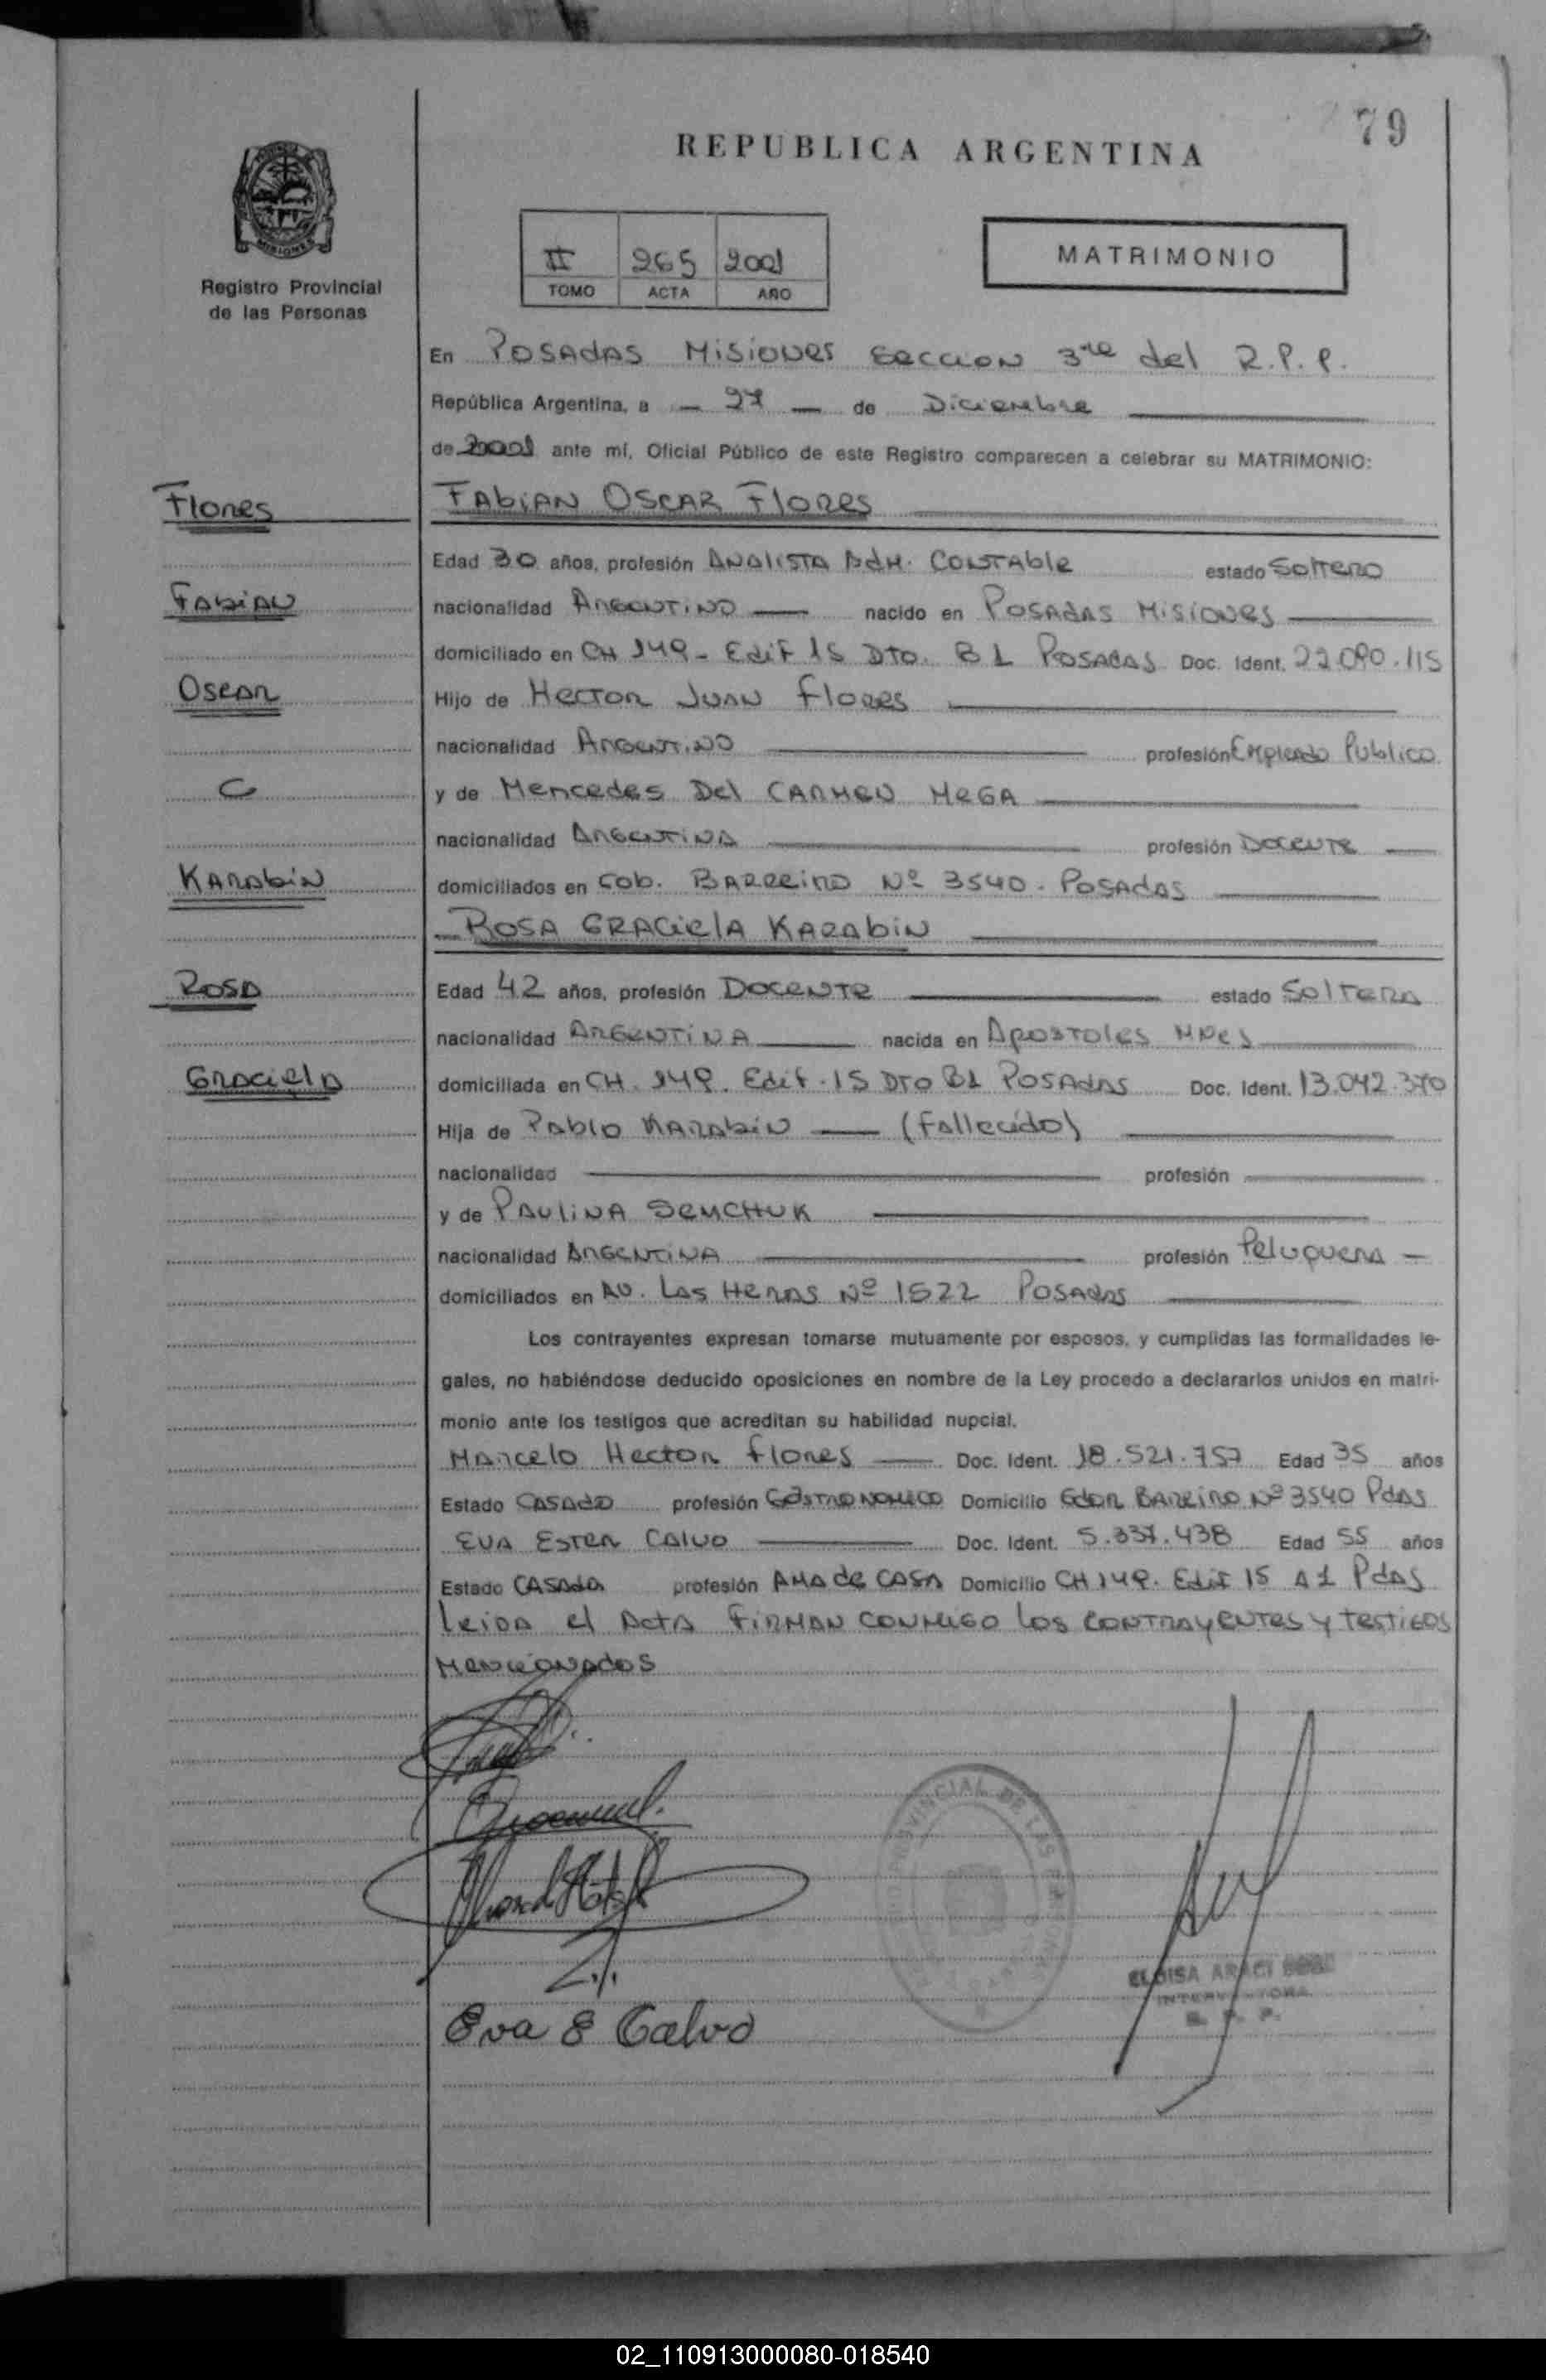 79
REPUBLICA ARGENTINA
Registro Provincial
de las Personas
II 265 2001
TOMO ACTA AÑO
MATRIMONIO
En POSADAS MISIONES SECCION 3ra del R.P.P.
República Argentina, a — 27 — de Diciembre
de 2001 ante mí, Oficial Público de este Registro comparecen a celebrar su MATRIMONIO:
Flores
FABIAN OSCAR FLORES
Edad 30 años, profesión ANALISTA ADM. CONTABLE estado SOLTERO
Fabian
nacionalidad ARGENTINO nacido en POSADAS MISIONES
domiciliado en CH 149 - Edif 15 DTO. B1 POSADAS Doc. Ident. 22.090.115
Oscar
Hijo de HECTOR JUAN FLORES
nacionalidad ARGENTINO profesión Empleado Publico
C
y de Mercedes Del CARMEN MEGA
nacionalidad ARGENTINA profesión DOCENTE
Karabin
domiciliados en Gob. BARREIRO Nº 3540 - POSADAS
ROSA GRACIELA KARABIN
Rosa
Edad 42 años, profesión DOCENTE estado SOLTERA
nacionalidad ARGENTINA nacida en APOSTOLES MNES
Graciela
domiciliada en CH. 149. Edif. 15 DTO B1 POSADAS Doc. Ident. 13.042.370
Hija de Pablo KARABIN — (Fallecido)
nacionalidad profesión
y de PAULINA SEMCHUK
nacionalidad ARGENTINA profesión Peluquera
domiciliados en AV. LAS HERAS Nº 1522 POSADAS
Los contrayentes expresan tomarse mutuamente por esposos, y cumplidas las formalidades le-
gales, no habiéndose deducido oposiciones en nombre de la Ley procedo a declararlos unidos en matri-
monio ante los testigos que acreditan su habilidad nupcial.
Marcelo Hector Flores Doc. Ident. 18.521.757 Edad 35 años
Estado CASADO profesión GASTRONOMICO Domicilio Gdor BARREIRO Nº 3540 Pdas
EVA ESTER CALVO Doc. Ident. 5.337.438 Edad 55 años
Estado CASADA profesión AMA de CASA Domicilio CH 149. Edif 15 A1 Pdas
Leida el Acta FIRMAN CONMIGO los CONTRAYENTES y TESTIGOS
MENCIONADOS
PROVINCIAL DE LAS PERSONAS
ELOISA ARACI
INTERVENTORA
R. P. P.
Eva E Calvo
02_110913000080-018540